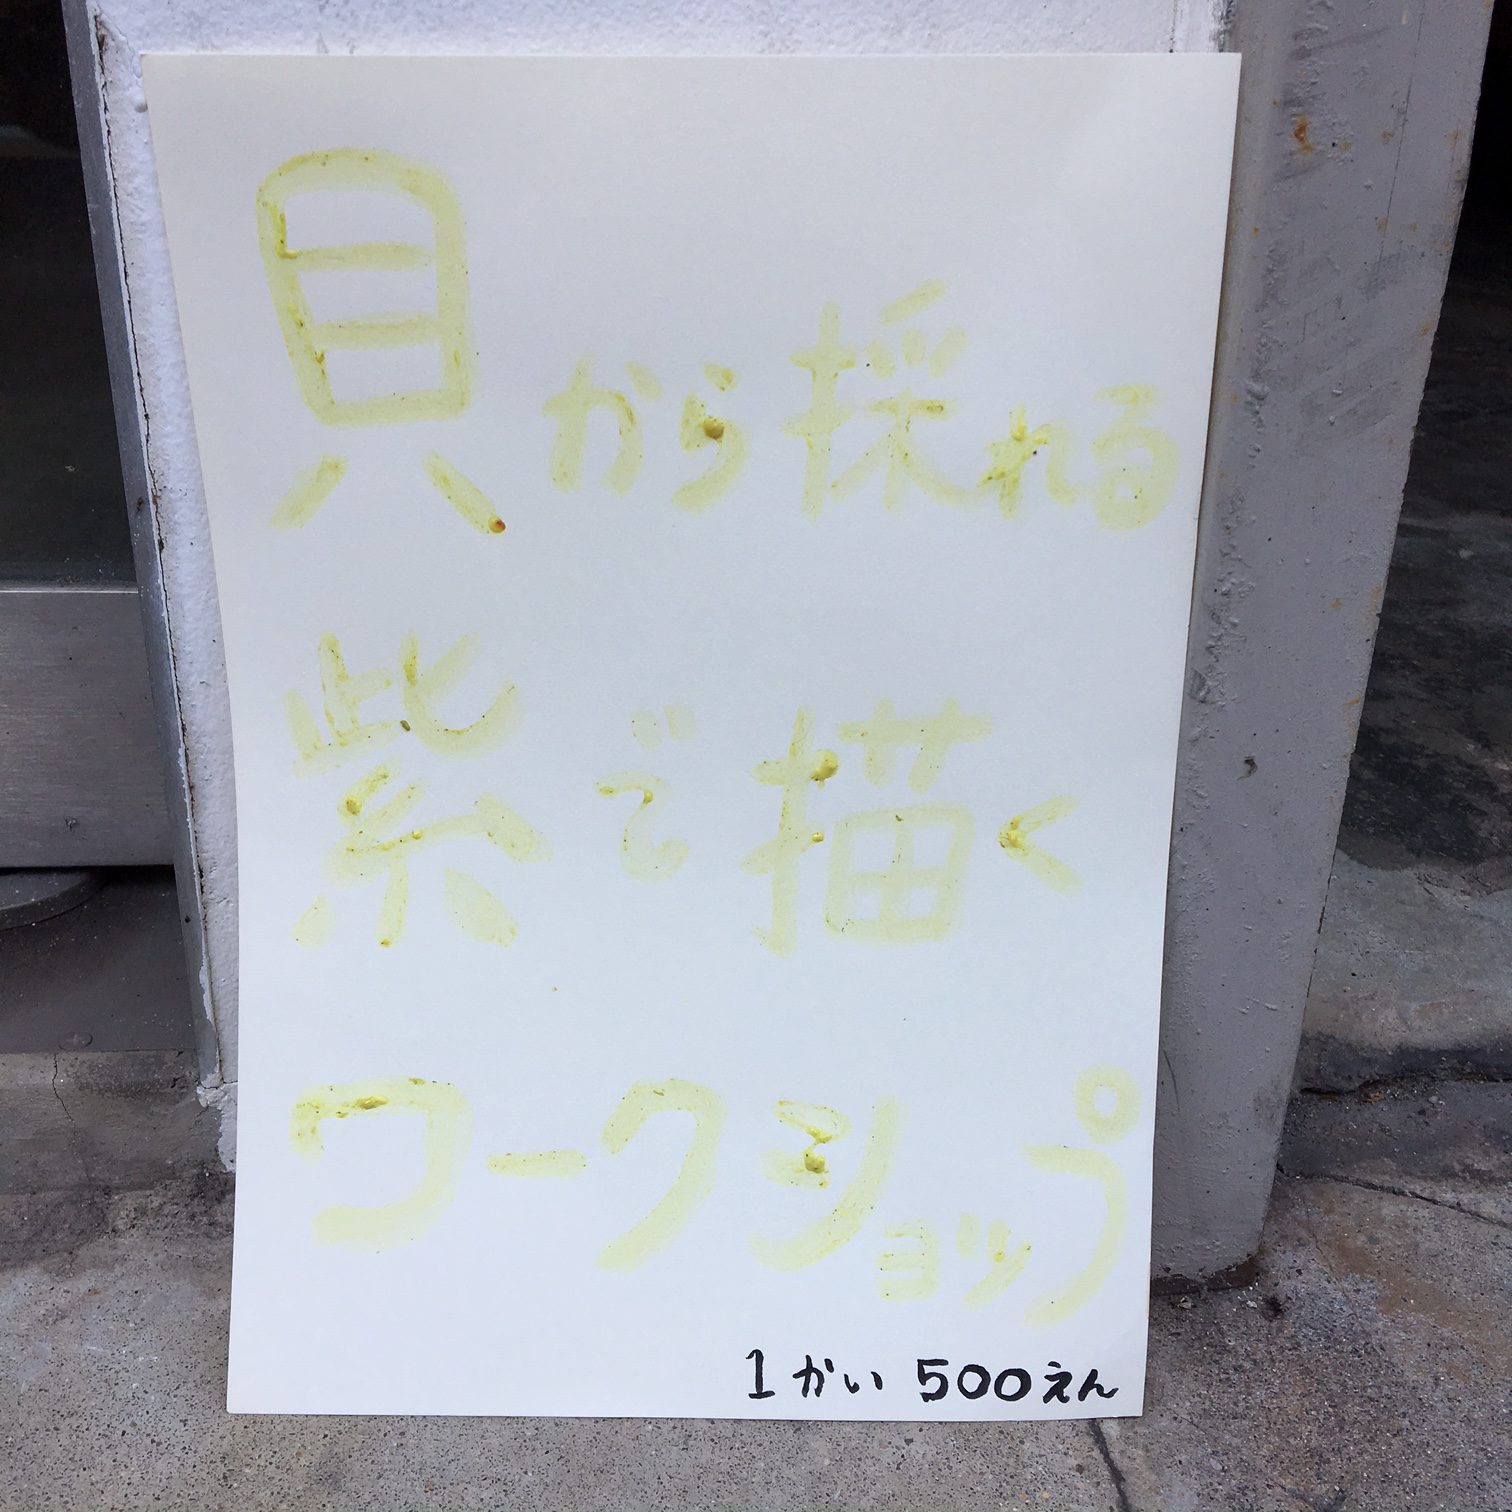 貝から採れる
紫で描く
ワークショップ
1かい 500えん